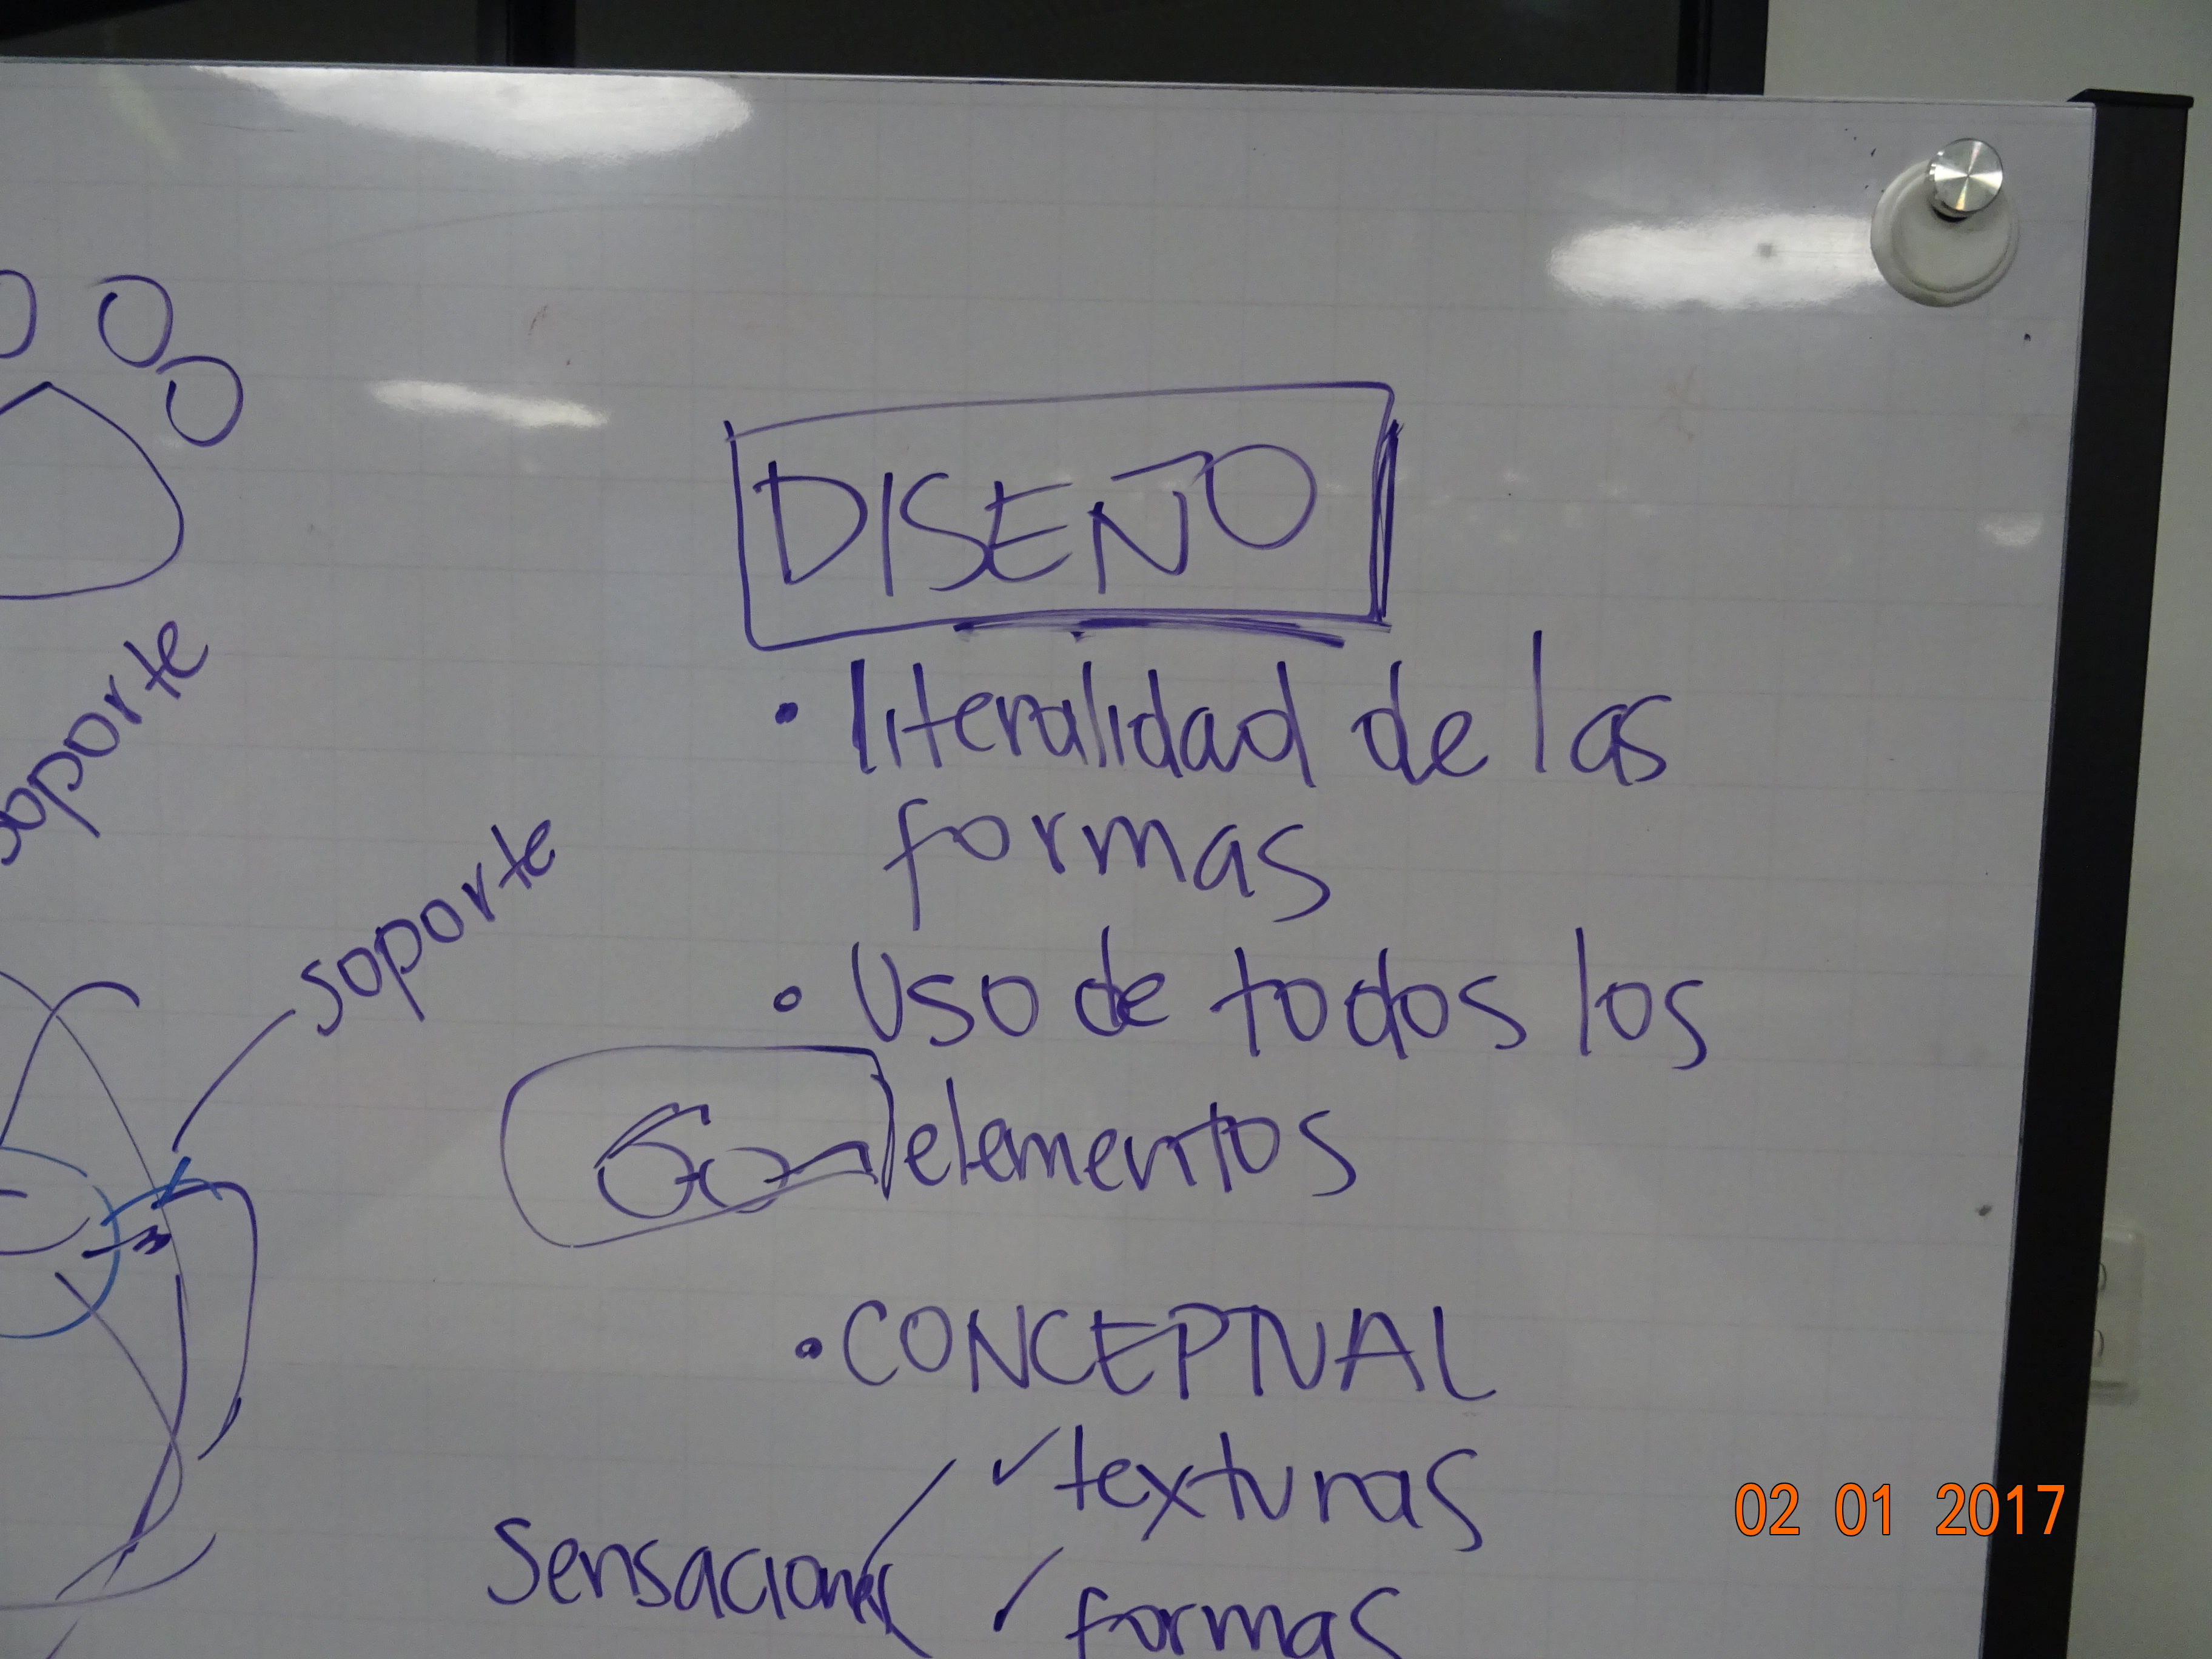 DISEÑO
• literalidad de las
formas
• Uso de todos los
elementos
• CONCEPTUAL
✓ texturas
Sensaciones
✓ formas
soporte
soporte
02 01 2017